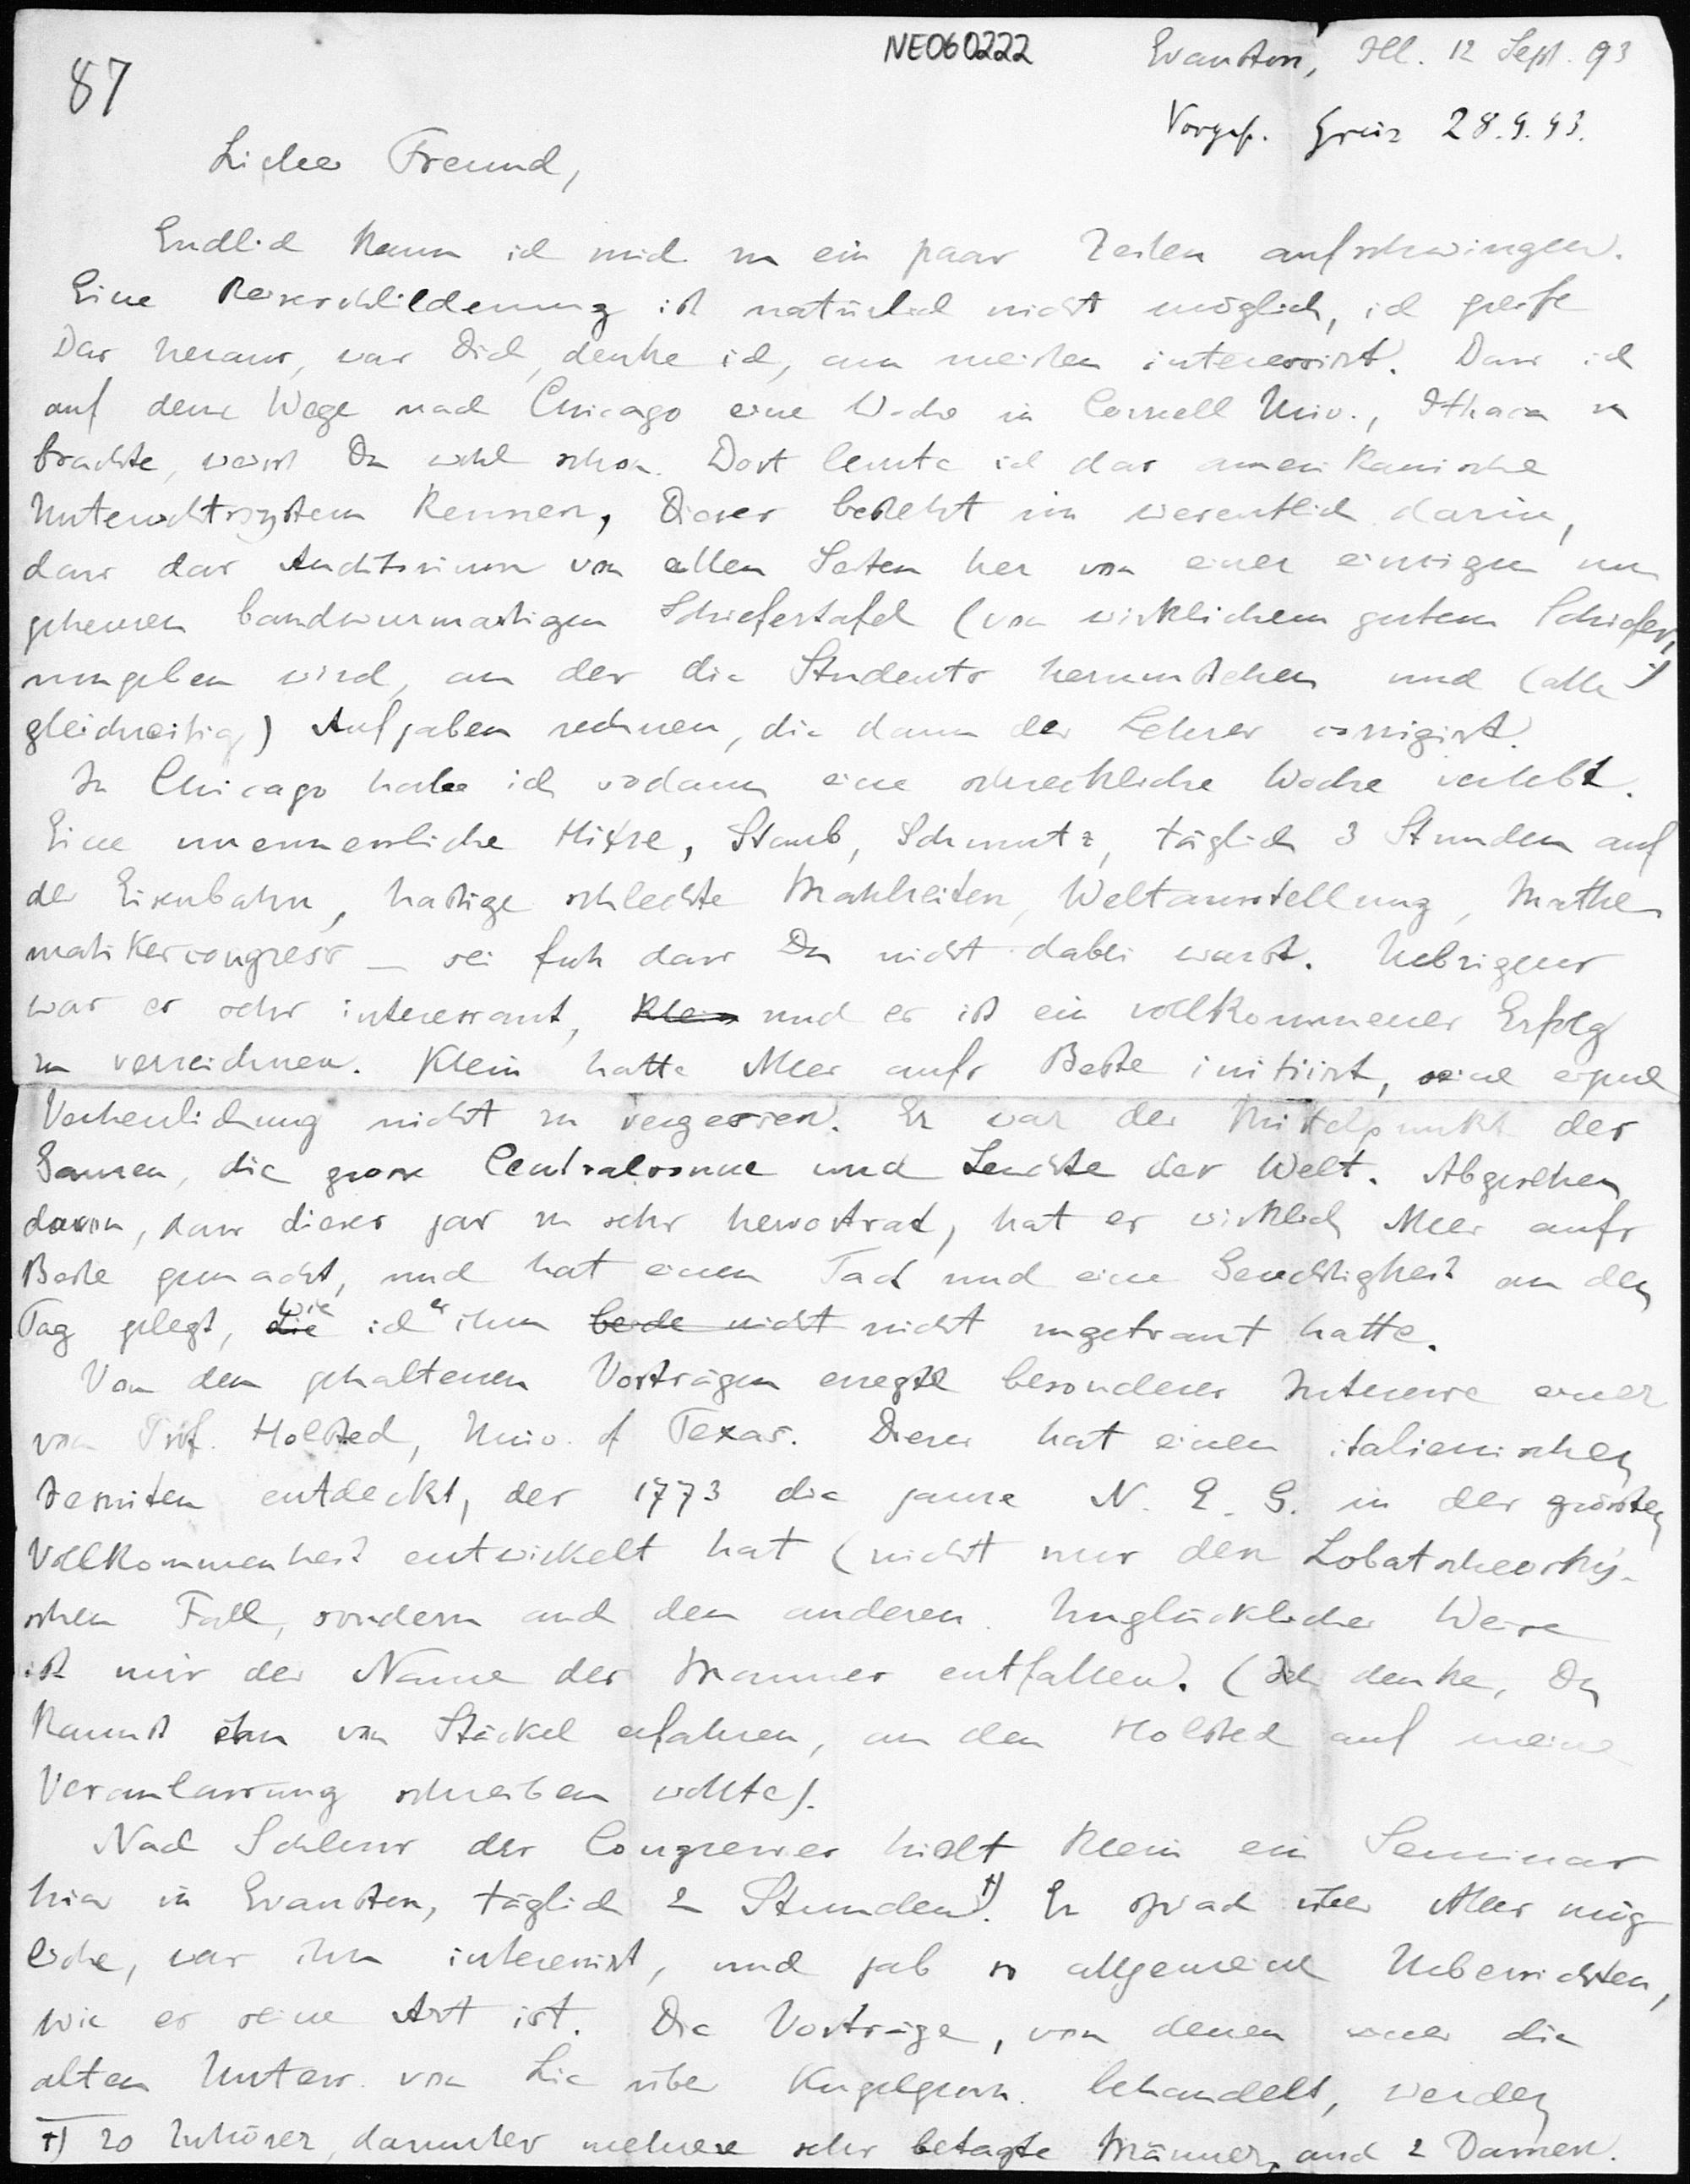 NE060222
Evanston, Ill. 12 Sept. 93
87
Vorges. Greiz 28.9.93.
Lieber Freund,
Endlich kann ich mich zu ein paar Zeilen aufschwingen.
Eine Reiseschilderung ist natürlich nicht möglich, ich greife
Das heraus, was Dich, denke ich, am meisten interessirt. Dass ich
auf dem Wege nach Chicago eine Woche in Cornell Univ., Ithaca zu
brachte, weisst Du wohl schon. Dort lernte ich das amerikanische
Unterrichtssystem kennen, Dieses besteht im wesentlich darin,
dass das Auditorium von allen Seiten her von einer einzigen un
geheuren bandwurmartigen Schiefertafel (von wirklichem gutem Schiefer,)
umgeben wird, an der die Students herumstehen und (alle
gleichzeitig) Aufgaben rechnen, die dann der Lehrer corrigirt.
In Chicago habe ich sodann eine schreckliche Woche verlebt.
Eine unermessliche Hitze, Staub, Schmutz, täglich 3 Stunden auf
der Eisenbahn, hastige schlechte Mahlzeiten, Weltausstellung, Mathe
matikercongress – sei froh dass Du nicht dabei warst. Uebrigens
war es sehr interessant, Klein und es ist ein vollkommener Erfolg
zu verzeichnen. Klein hatte Alles aufs Beste initiirt, seine eigene
Verherrlichung nicht zu vergessen. Er war der Mittelpunkt des
Ganzen, die grosse Centralsonne und Leuchte der Welt. Abgesehen
davon, dass dieses gar zu sehr hervortrat, hat er wirklich Alles aufs
Beste gemacht, und hat einen Tact und eine Gerechtigkeit an den
Tag gelegt, die wie ich es ihm beide nicht nicht zugetraut hatte.
Von den gehaltenen Vorträgen erregte besonderes Interesse einer
von Prof. Holsted, Univ. of Texas. Dieser hat einen italienischen
Jesuiten entdeckt, der 1773 die ganze N. E. G. in der grössten
Vollkommenheit entwickelt hat (nicht nur den Lobatschewsky-
schen Fall, sondern auch den anderen. Unglücklicher Weise
ist mir der Name des Mannes entfallen. (Ich denke, Du
kannst ihn von Stäckel erfahren, an den Holsted auf meine
Veranlassung schreiben wollte).
Nach Schluss des Congresses hielt Klein ein Seminar
hier in Evanston, täglich 2 Stunden †). Er sprach über Alles mög
liche, was ihn interessirt, und gab so allgemeine Uebersichten,
wie es seine Art ist. Die Vorträge, von denen einer die
alten Unters. von Lie über Kugelgeom. behandelt, werden
†) 20 Zuhörer, darunter mehrere sehr betagte Männer, und 2 Damen.